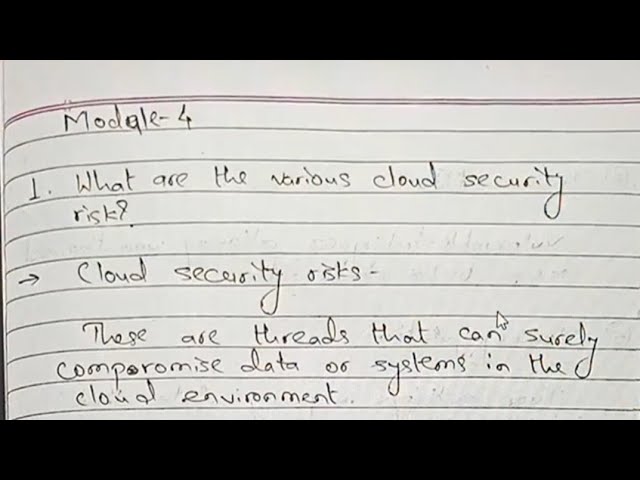 Module-4
1. What are the various cloud security
risk?
→ Cloud security risks-
These are threads that can surely
compromise data or systems in the
cloud environment.